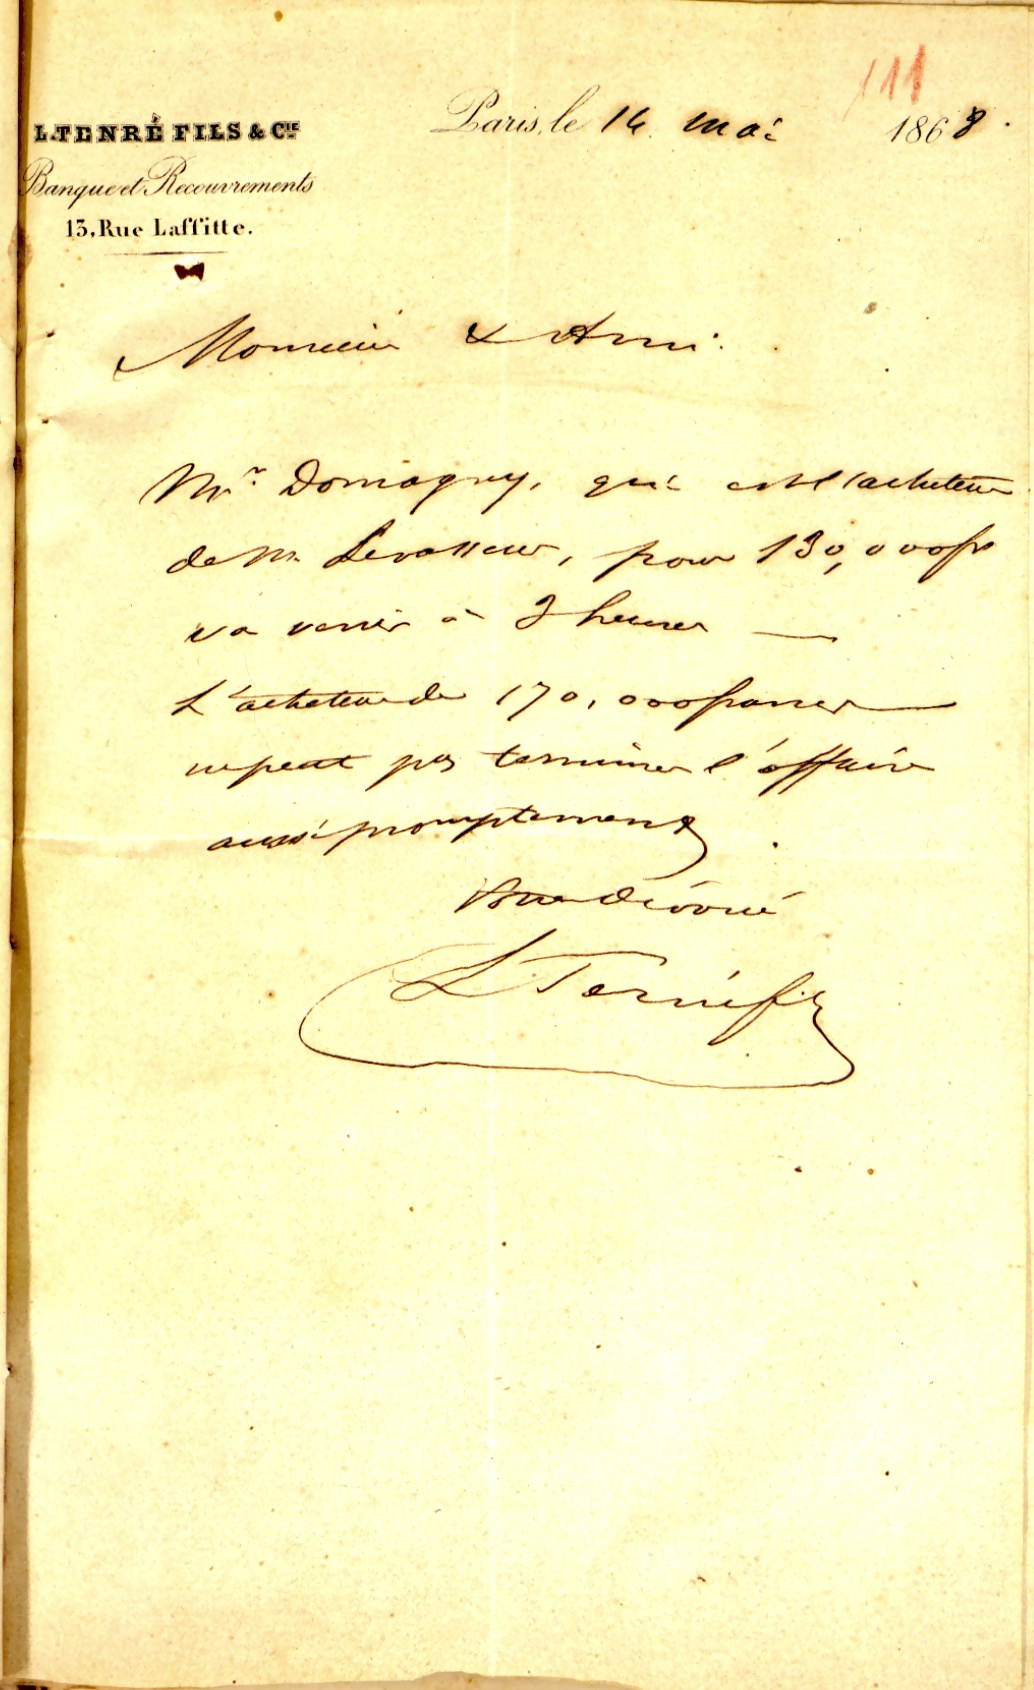 111
L. TENRÉ FILS & Cie
Banque et Recouvrements
13, Rue Laffitte.
Paris, le 14 mai 1868.
Monsieur & Ami.
Mr. Domagny, qui est l'acheteur
de M. Levasseur, pour 130,000 fr
va venir à 3 heures —
L'acheteur de 170,000 francs —
ne peut pas terminer l'affaire
aussi promptement.
dévoué
L Tenré fils